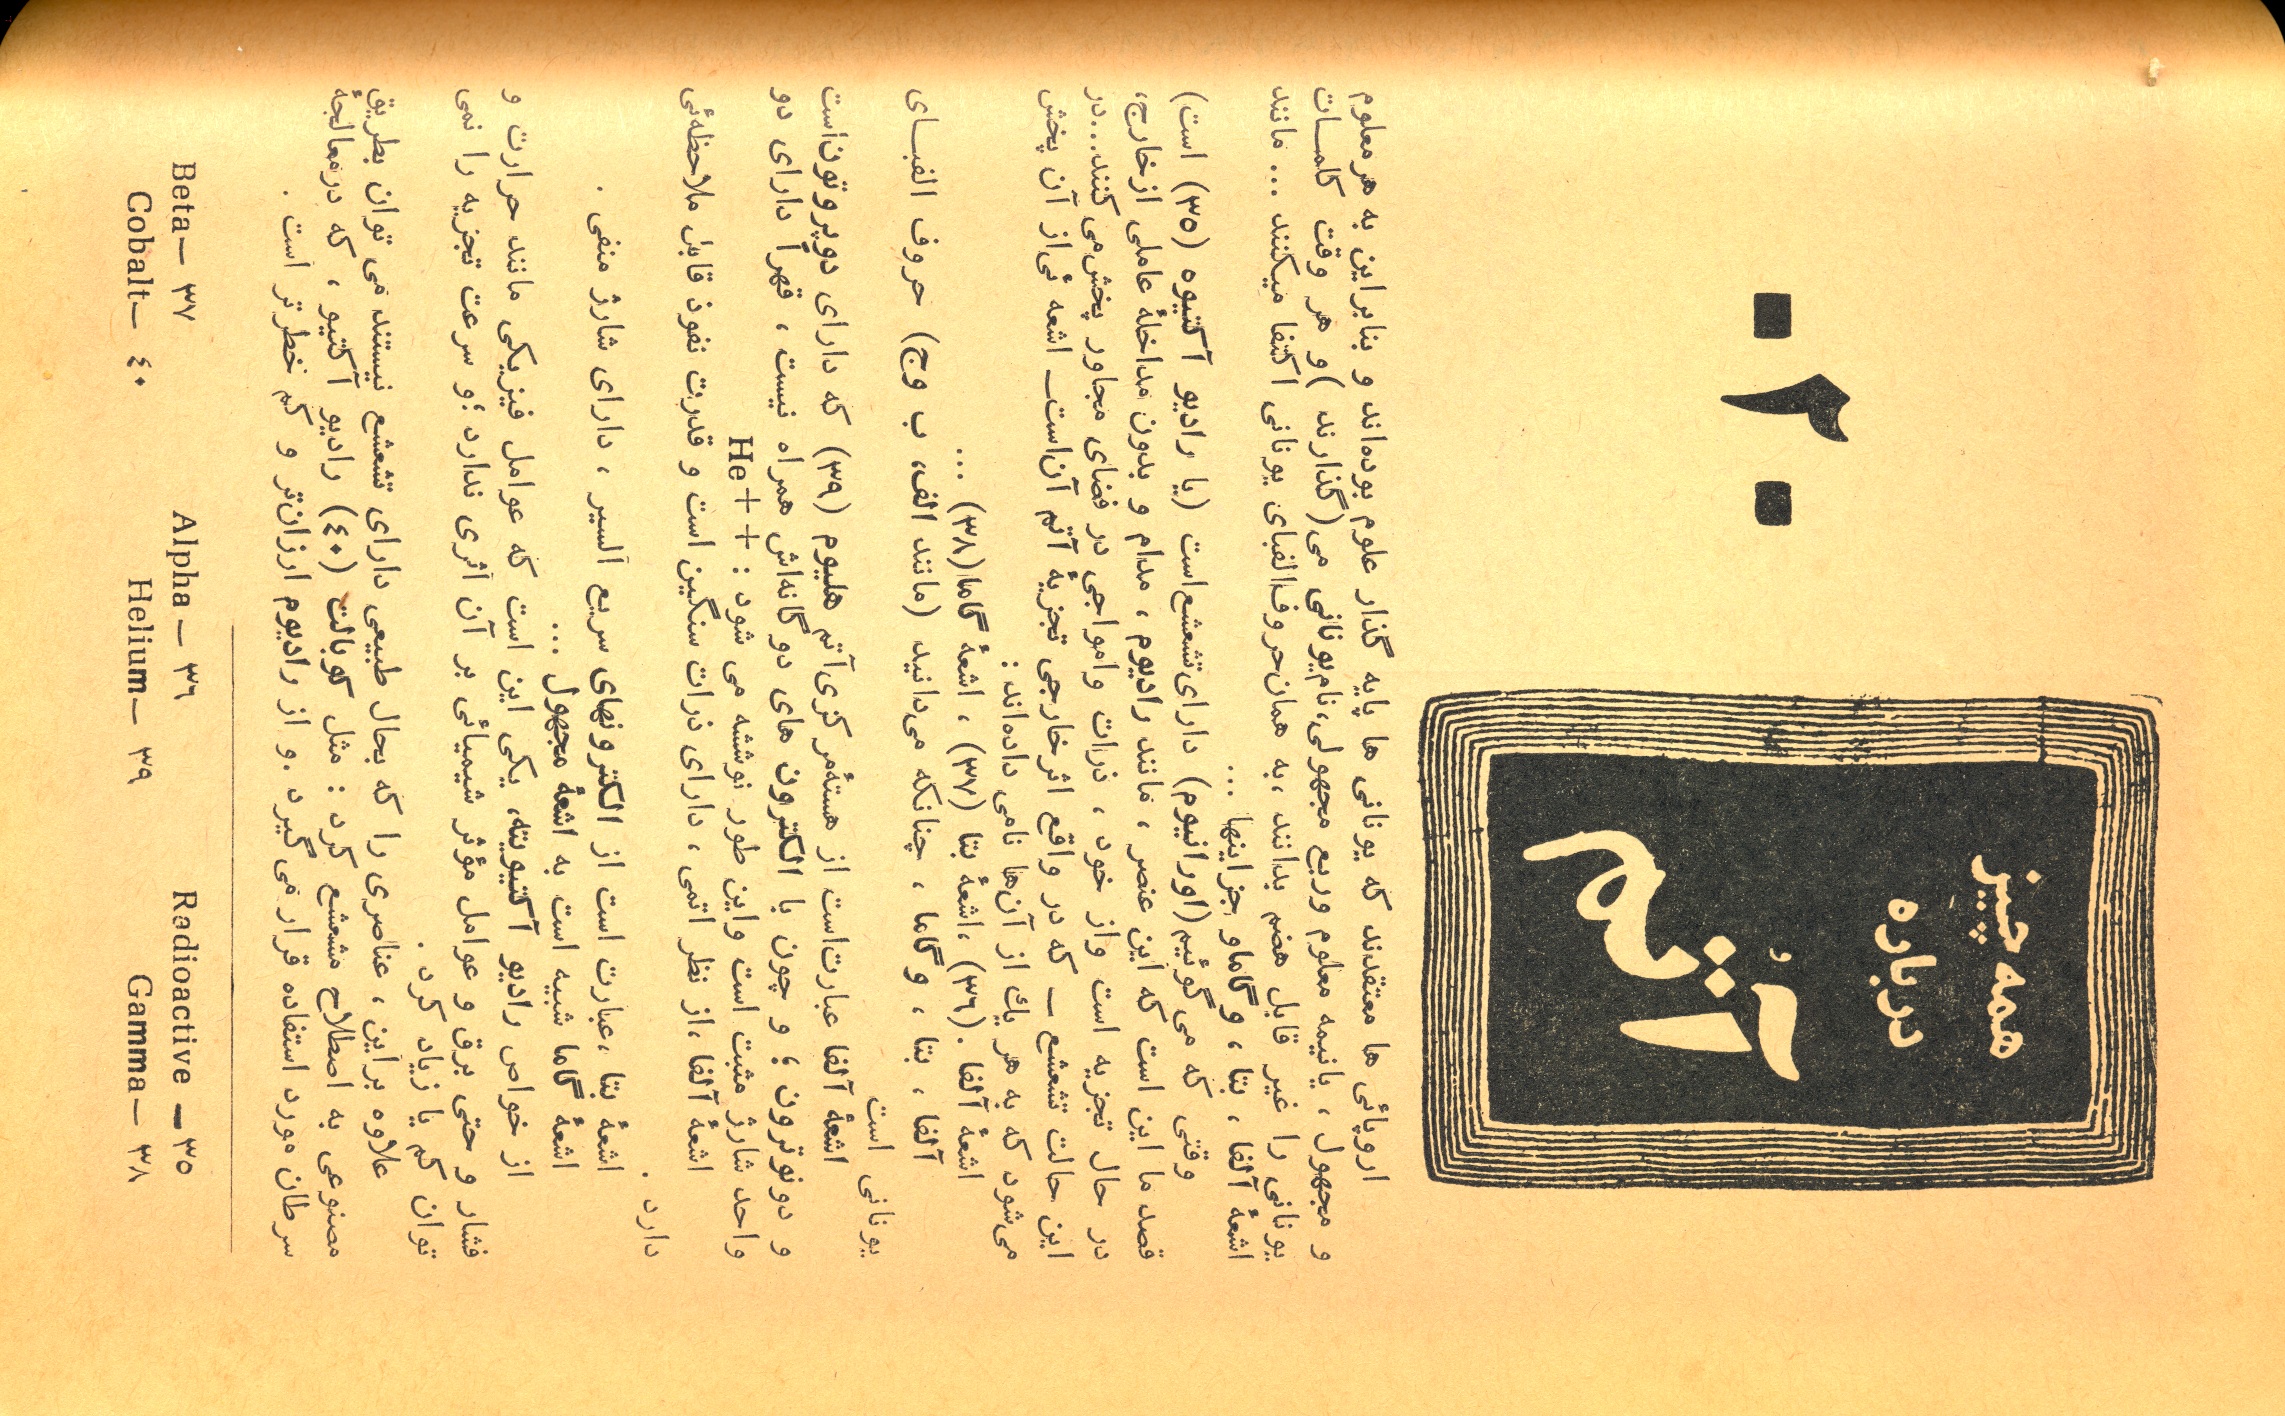 همه چیز
درباره
آتم
۲
اروپائی ها معتقدند که یونانی ها پایه گذار علوم بوده‌اند و بنابراین به هر معلوم
و مجهول ، یا نیمه معلوم وربع مجهولی،نام یونانی می(گذارند )و هر وقت کلمــات
یونانی را غیر قابل هضم بدانند ،به همان‌حروف‌الفبای یونانی اکتفا میکنند ... مانند
اشعهٔ آلفا ، بتا ، وگاماو جزاینها ...
وقتی که می گوئیم(اورانیوم) دارای‌تشعشع‌است (یا رادیو آکتیوه (۳۵) است)
قصد ما این است که این عنصر ، مانند رادیوم ، مدام و بدون مداخلهٔ عاملی ازخارج،
در حال تجزیه است واز خود ، ذرات وامواجی در فضای مجاور پخش‌می کنند..در
این حالت تشعشع — که در واقع اثر خارجی تجزیهٔ آتم آن‌است— اشعه ئی‌از آن پخش
می‌شود که به هر یك از آن‌ها نامی داده‌اند:
اشعهٔ آلفا .(۳٦) ،اشعهٔ بتا (۳۷) ، اشعهٔ گاما(۳۸) ...
آلفا ، بتا ، وگاما ، چنانکه می‌دانید (مانند الف، ب وج) حروف الفبــای
یونانی است
اشعهٔ آلفا عبارت‌است از هستهٔ‌مرکزی‌آتم هلیوم (۳۹) که دارای دوپروتون‌است
و دونوترون ؛ و چون با الکترون های دوگانه‌اش همراه نیست ، قهراً دارای دو
واحد شارژ مثبت است واین طور نوشته می شود : ++He
اشعهٔ آلفا ،از نظر اتمی ، دارای ذرات سنگین است و قدرت نفوذ قابل ملاحظه‌ئی
دارد .
اشعهٔ بتا ،عبارت است از الکترونهای سریع السیر ، دارای شارژ منفی .
اشعهٔ گاما شبیه است به اشعهٔ مجهول ...
از خواص رادیو آکتیویته، یکی این است که عوامل فیزیکی مانند حرارت و
فشار و حتی برق و عوامل مؤثر شیمیائی بر آن اثری ندارد ؛و سرعت تجزیه را نمی
توان کم یا زیاد کرد .
علاوه براین ، عناصری را که بحال طبیعی دارای تشعشع نیستند می توان بطریق
مصنوعی به اصطلاح مشعشع کرد : مثل کوبالت (٤۰) رادیو آکتیو ، که درمعالجهٔ
سرطان مورد استفاده قرار می گیرد .و از رادیوم ارزان‌تر و کم خطرتر است .
Radioactive —۳۵
Alpha — ۳٦
Beta— ۳۷
Gamma— ۳۸
Helium— ۳۹
Cobalt— ٤۰